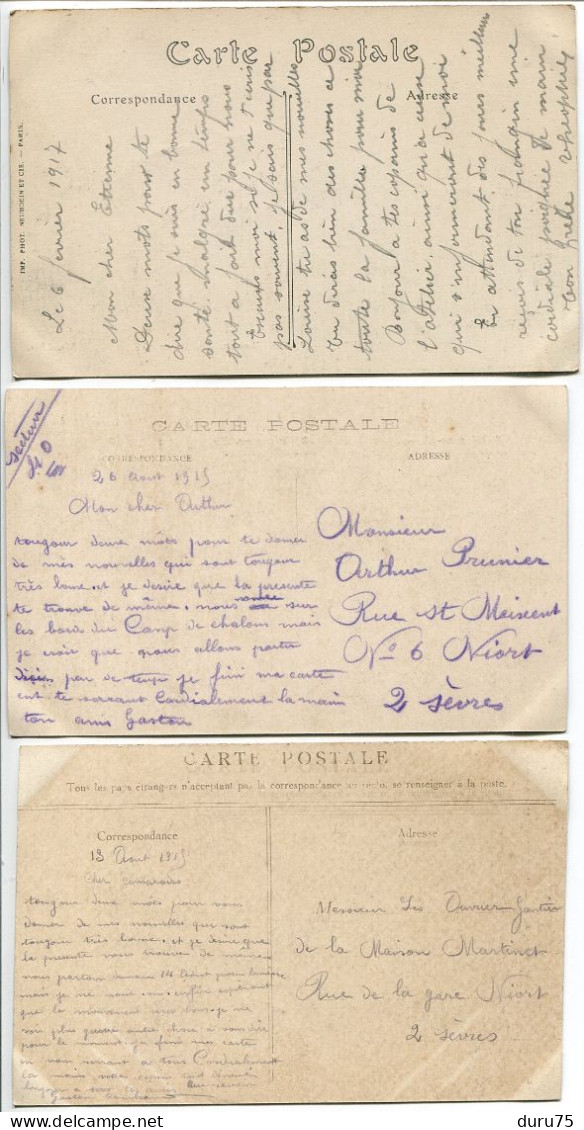 Carte Postale
Correspondance
Adresse
IMP. PHOT. NEURDEIN ET CIE. — PARIS.
Le 6 fevrier 1917
Mon cher Etienne
Deux mots pour te
dire que je suis en bonne
santé malgré un temps
tout a fait dur pour nous
Excuses moi si je ne t'écris
pas souvent, je sais que par
Louise tu as de mes nouvelles
Tu diras bien des choses a
toute la famille pour moi
Bonjour a tes copains de
l'atelier, ainsi qu'a ceux
qui s'informeront de moi
En attendant des jours meilleurs
reçois de ton frangin une
cordiale poignée de main
Ton frère Théophile
CARTE POSTALE
CORRESPONDANCE
ADRESSE
secteur
26 Aout 1915
Mon cher Arthur
toujour deux mots pour te donner
de mes nouvelles qui sont toujour
très bonne. et je desire que la presente
te trouve de même. nous somme sur
les bord du Camp de chalons mais
je croit que nous allons partir
d'ici peu de temp je fini ma carte
ent te serrant Cordialement la main
ton amis Gaston
Monsieur
Arthur Prunier
Rue St Maixent
No 6 Niort
2 Sèvres
CARTE POSTALE
Tous les pays étrangers n'acceptant pas la correspondance au recto, se renseigner à la poste.
Correspondance
Adresse
13 Aout 1915
Cher camarades
toujour deux mots pour vous
donner de mes nouvelles qui sont
toujour très bonne. et je desire que
la presente vous trouve de même
nous parton demain 14
mais je ne sait ou. enfin esperont
que la
non plus autre chose a vous dire
pour le moment. je fini ma carte
en vous serrant a tous Cordialement
la main votre copain
Gaston
Messieur Les Ouvrier Gantier
de la Maison Martinet
Rue de la gare Niort
2 Sèvres
duru75